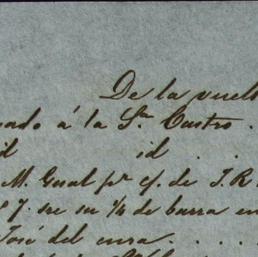 De la vuelt
nado á la Sra Castro .
id id . .
M. Gual pr c/. de J. R
7. sre su 1/4 de barra en
José del cura . . . .